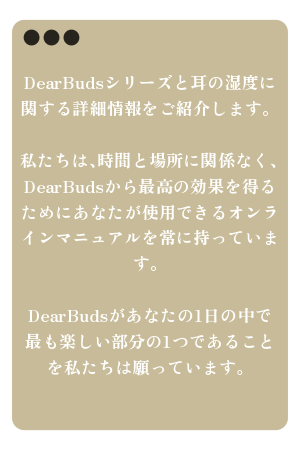 DearBudsシリーズと耳の湿度に
関する詳細情報をご紹介します。
私たちは、時間と場所に関係なく、
DearBudsから最高の効果を得る
ためにあなたが使用できるオンラ
インマニュアルを常に持っていま
す。
DearBudsがあなたの1日の中で
最も楽しい部分の1つであること
を私たちは願っています。